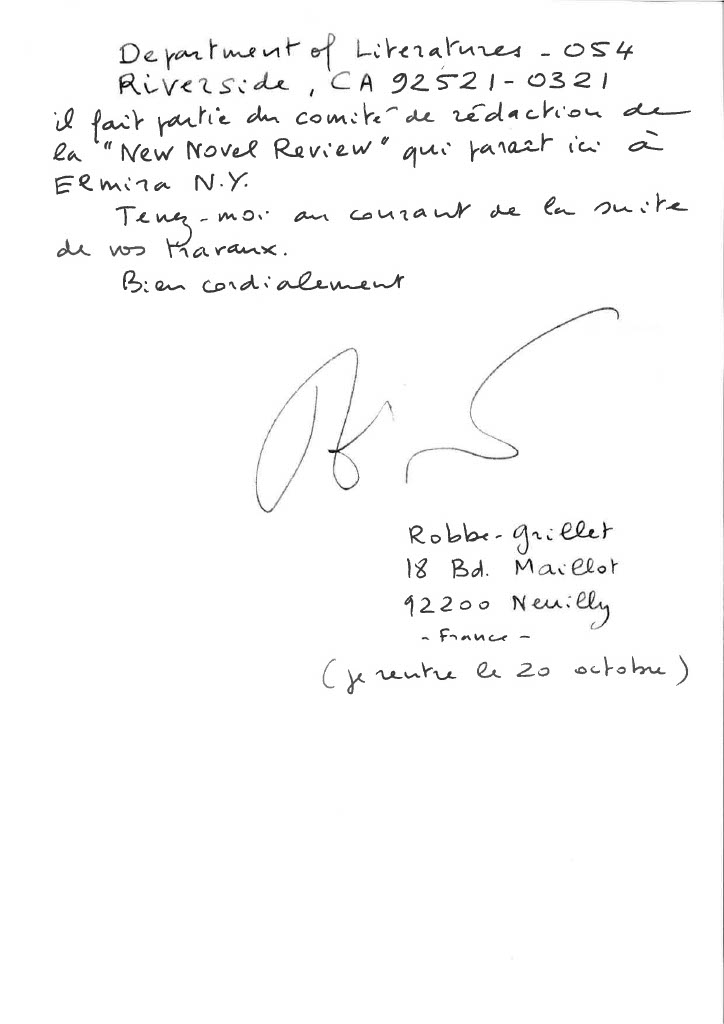 Department of Literatures - 054
Riverside, CA 92521-0321
il fait partie du comité de rédaction de
la "New Novel Review" qui paraît ici à
Elmira N.Y.
Tenez-moi au courant de la suite
de vos travaux.
Bien cordialement
Robbe-Grillet
18 Bd. Maillot
92200 Neuilly
- France -
(je rentre le 20 octobre)